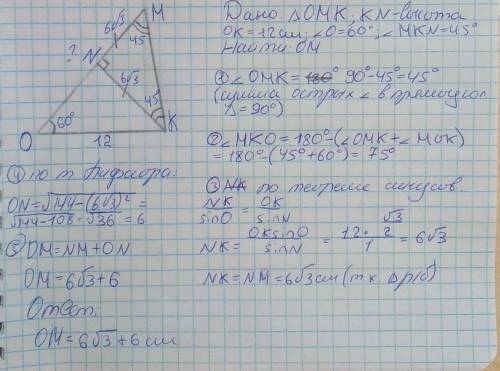 Дано: △OMK, KN-высота
OK=12см; ∠O=60°; ∠MKN=45°
Найти: OM
① ∠OMK= 180° 90°-45°=45°
(сумма острых ∠ в прямоугол
△=90°)
② ∠MKO=180°-(∠OMK+∠MOK)
=180°-(45°+60°)=75°
③ NK по теореме синусов.
NK/sinO = OK/sinN
NK= OKsinO/sinN = 12·√3/2/1 =6√3
NK=NM=6√3см (т.к. △р/б)
M
6√3
45°
?
N
6√3
45°
60°
O
12
K
④ по т. Пифагора:
ON=√144-(6√3)²=
√144-108=√36=6
⑤ OM=NM+ON
OM=6√3+6
Ответ:
OM=6√3+6см